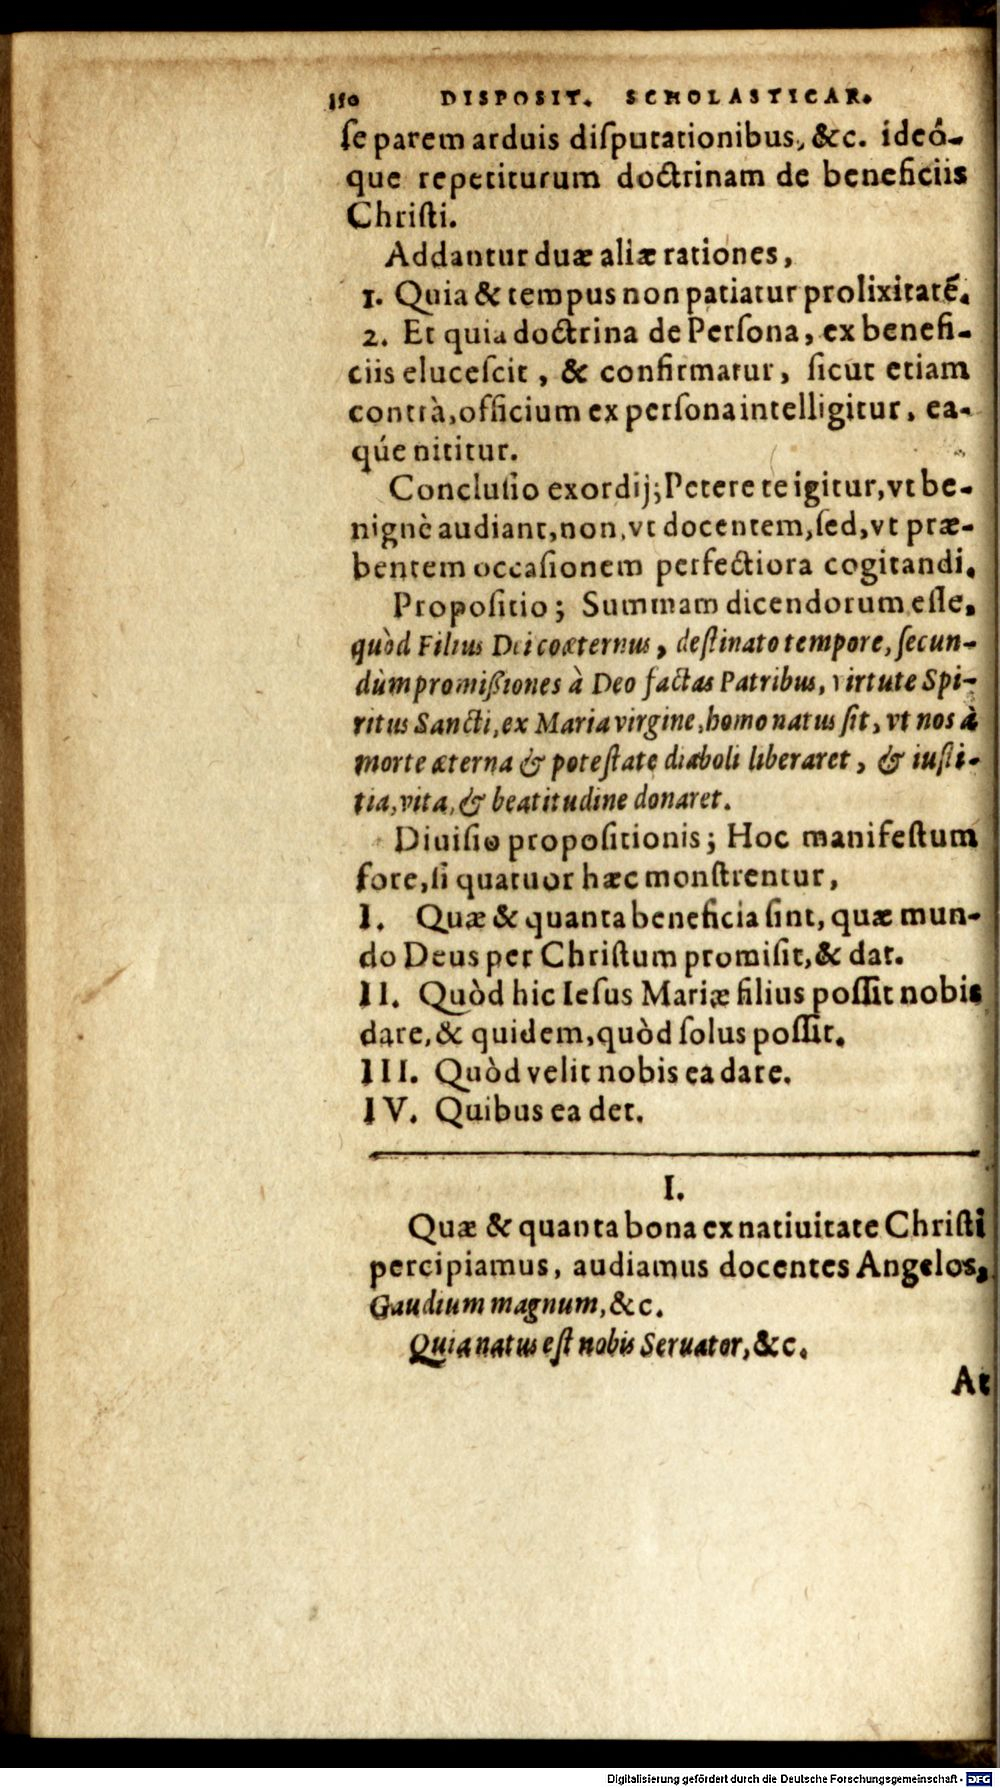 110 DISPOSIT. SCHOLASTICAR.
ſe parem arduis diſputationibus, &c. ideó-
que repetiturum doctrinam de beneficiis
Chriſti.
Addantur duæ aliæ rationes,
1. Quia & tempus non patiatur prolixitatē.
2. Et quia doctrina de Perſona, ex benefi-
ciis eluceſcit, & confirmatur, ſicut etiam
contrà, officium ex perſona intelligitur, ea-
qúe nititur.
Concluſio exordij; Petere te igitur, vt be-
nignè audiant, non, vt docentem, ſed, vt præ-
bentem occaſionem perfectiora cogitandi.
Propoſitio; Summam dicendorum eſſe,
quòd Filius Dei coæternus, deſtinato tempore, ſecun-
dùm promiſsiones à Deo factas Patribus, virtute Spi-
ritus Sancti, ex Maria virgine, homo natus ſit, vt nos à
morte æterna & poteſtate diaboli liberaret, & iuſti-
tia, vita, & beatitudine donaret.
Diuiſio propoſitionis; Hoc manifeſtum
fore, ſi quatuor hæc monſtrentur,
I. Quæ & quanta beneficia ſint, quæ mun-
do Deus per Chriſtum promiſit, & dat.
II. Quòd hic Ieſus Mariæ filius poſſit nobis
dare, & quidem, quòd ſolus poſſit.
III. Quòd velit nobis ea dare.
IV. Quibus ea det.
I.
Quæ & quanta bona ex natiuitate Chriſti
percipiamus, audiamus docentes Angelos,
Gaudium magnum, &c.
Quia natus eſt nobis Seruator, &c.
At
Digitalisierung gefördert durch die Deutsche Forschungsgemeinschaft - DFG